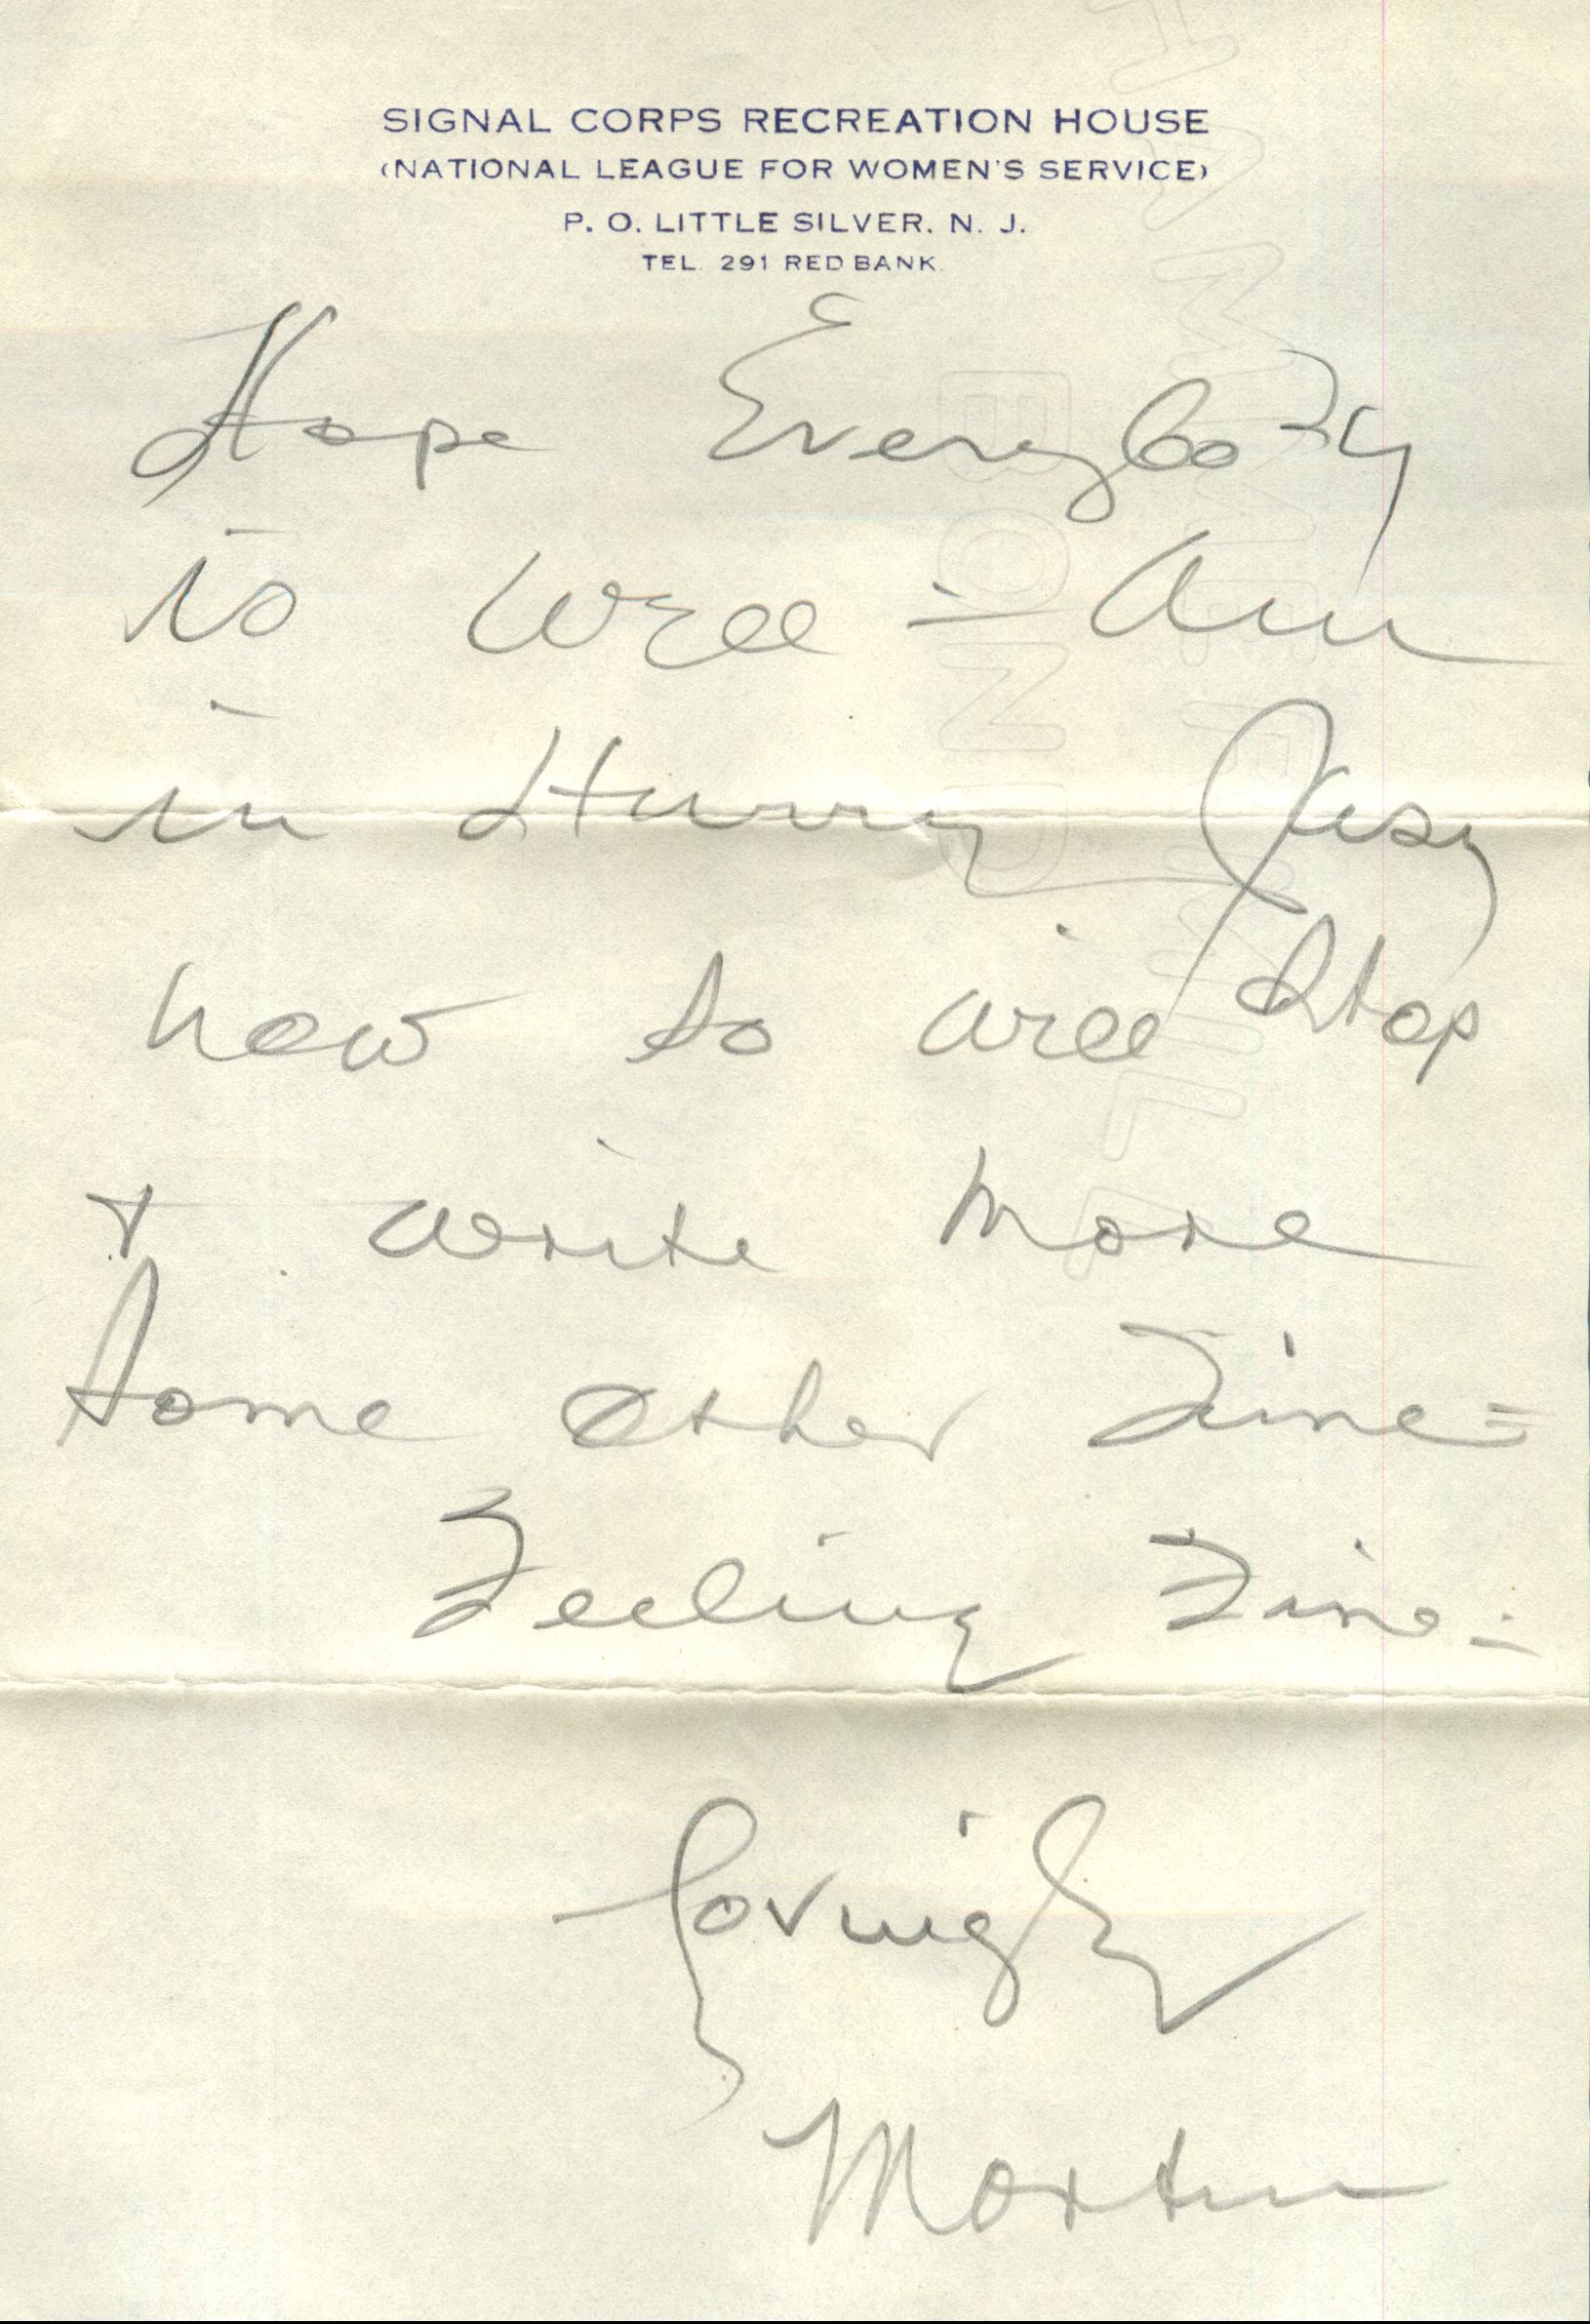 SIGNAL CORPS RECREATION HOUSE
(NATIONAL LEAGUE FOR WOMEN'S SERVICE)
P. O. LITTLE SILVER. N. J.
TEL. 291 RED BANK.
Hope Everybody
is well - Am
in Hurry Just
now so will Stop
+ write More
some other Time=
Feeling Fine=
Lovingly
Morton